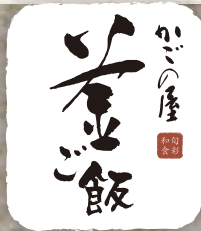 かごの屋
釜ご飯
旬彩
和食